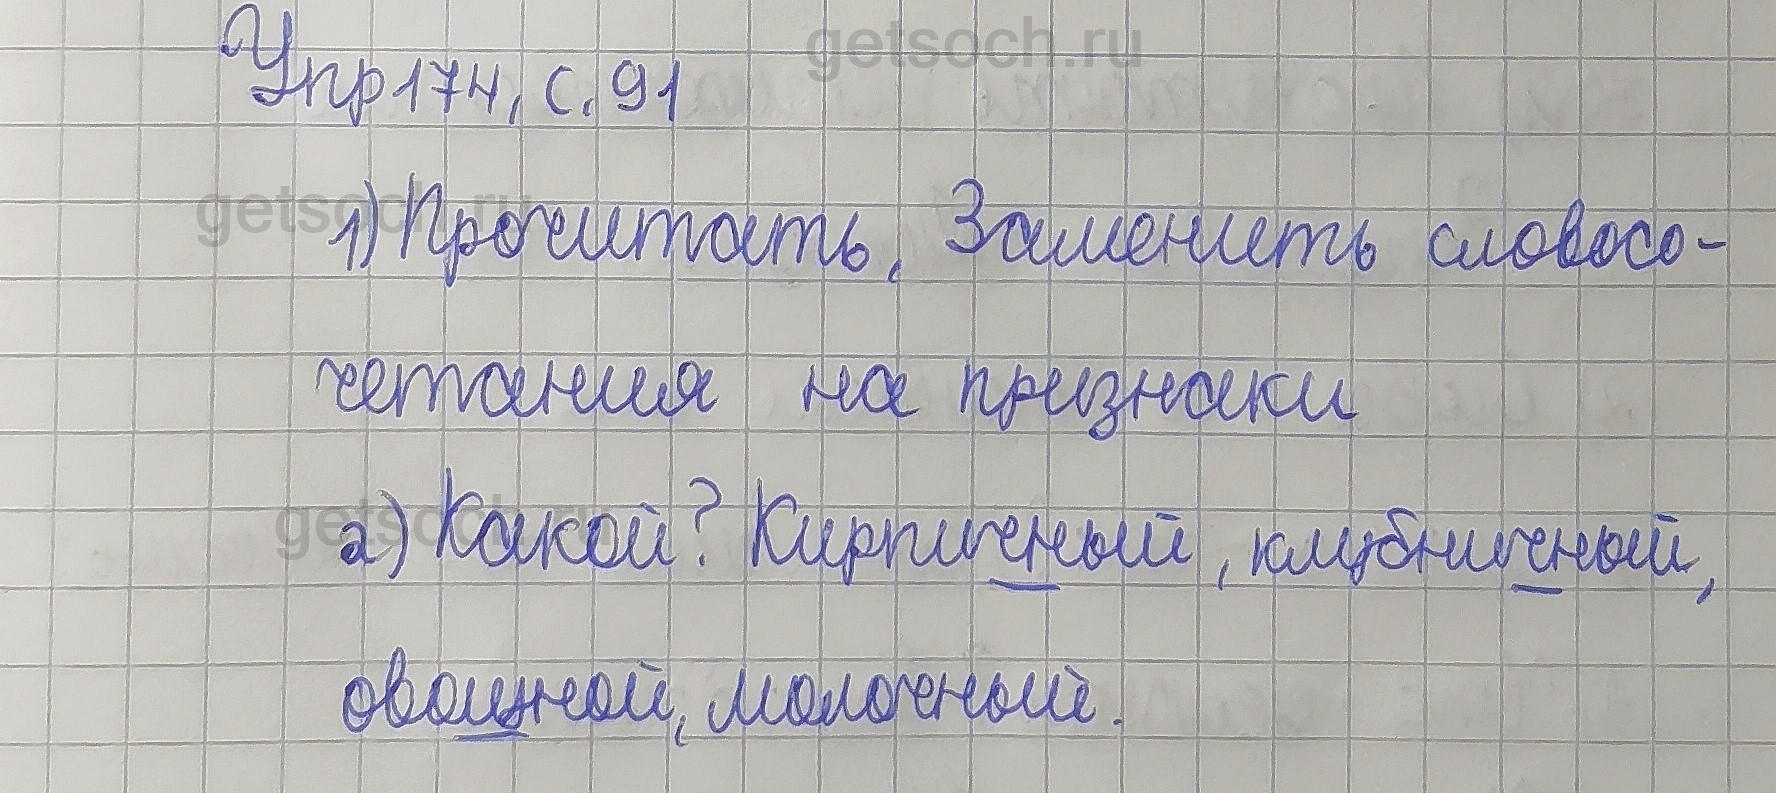 getsoch.ru
Упр 174, с. 91
getsoch.ru
1) Прочитать. Заменить словосо-
четания на признаки
getsoch.ru
а) Какой? Кирпичный, клубничный,
овощной, молочный.